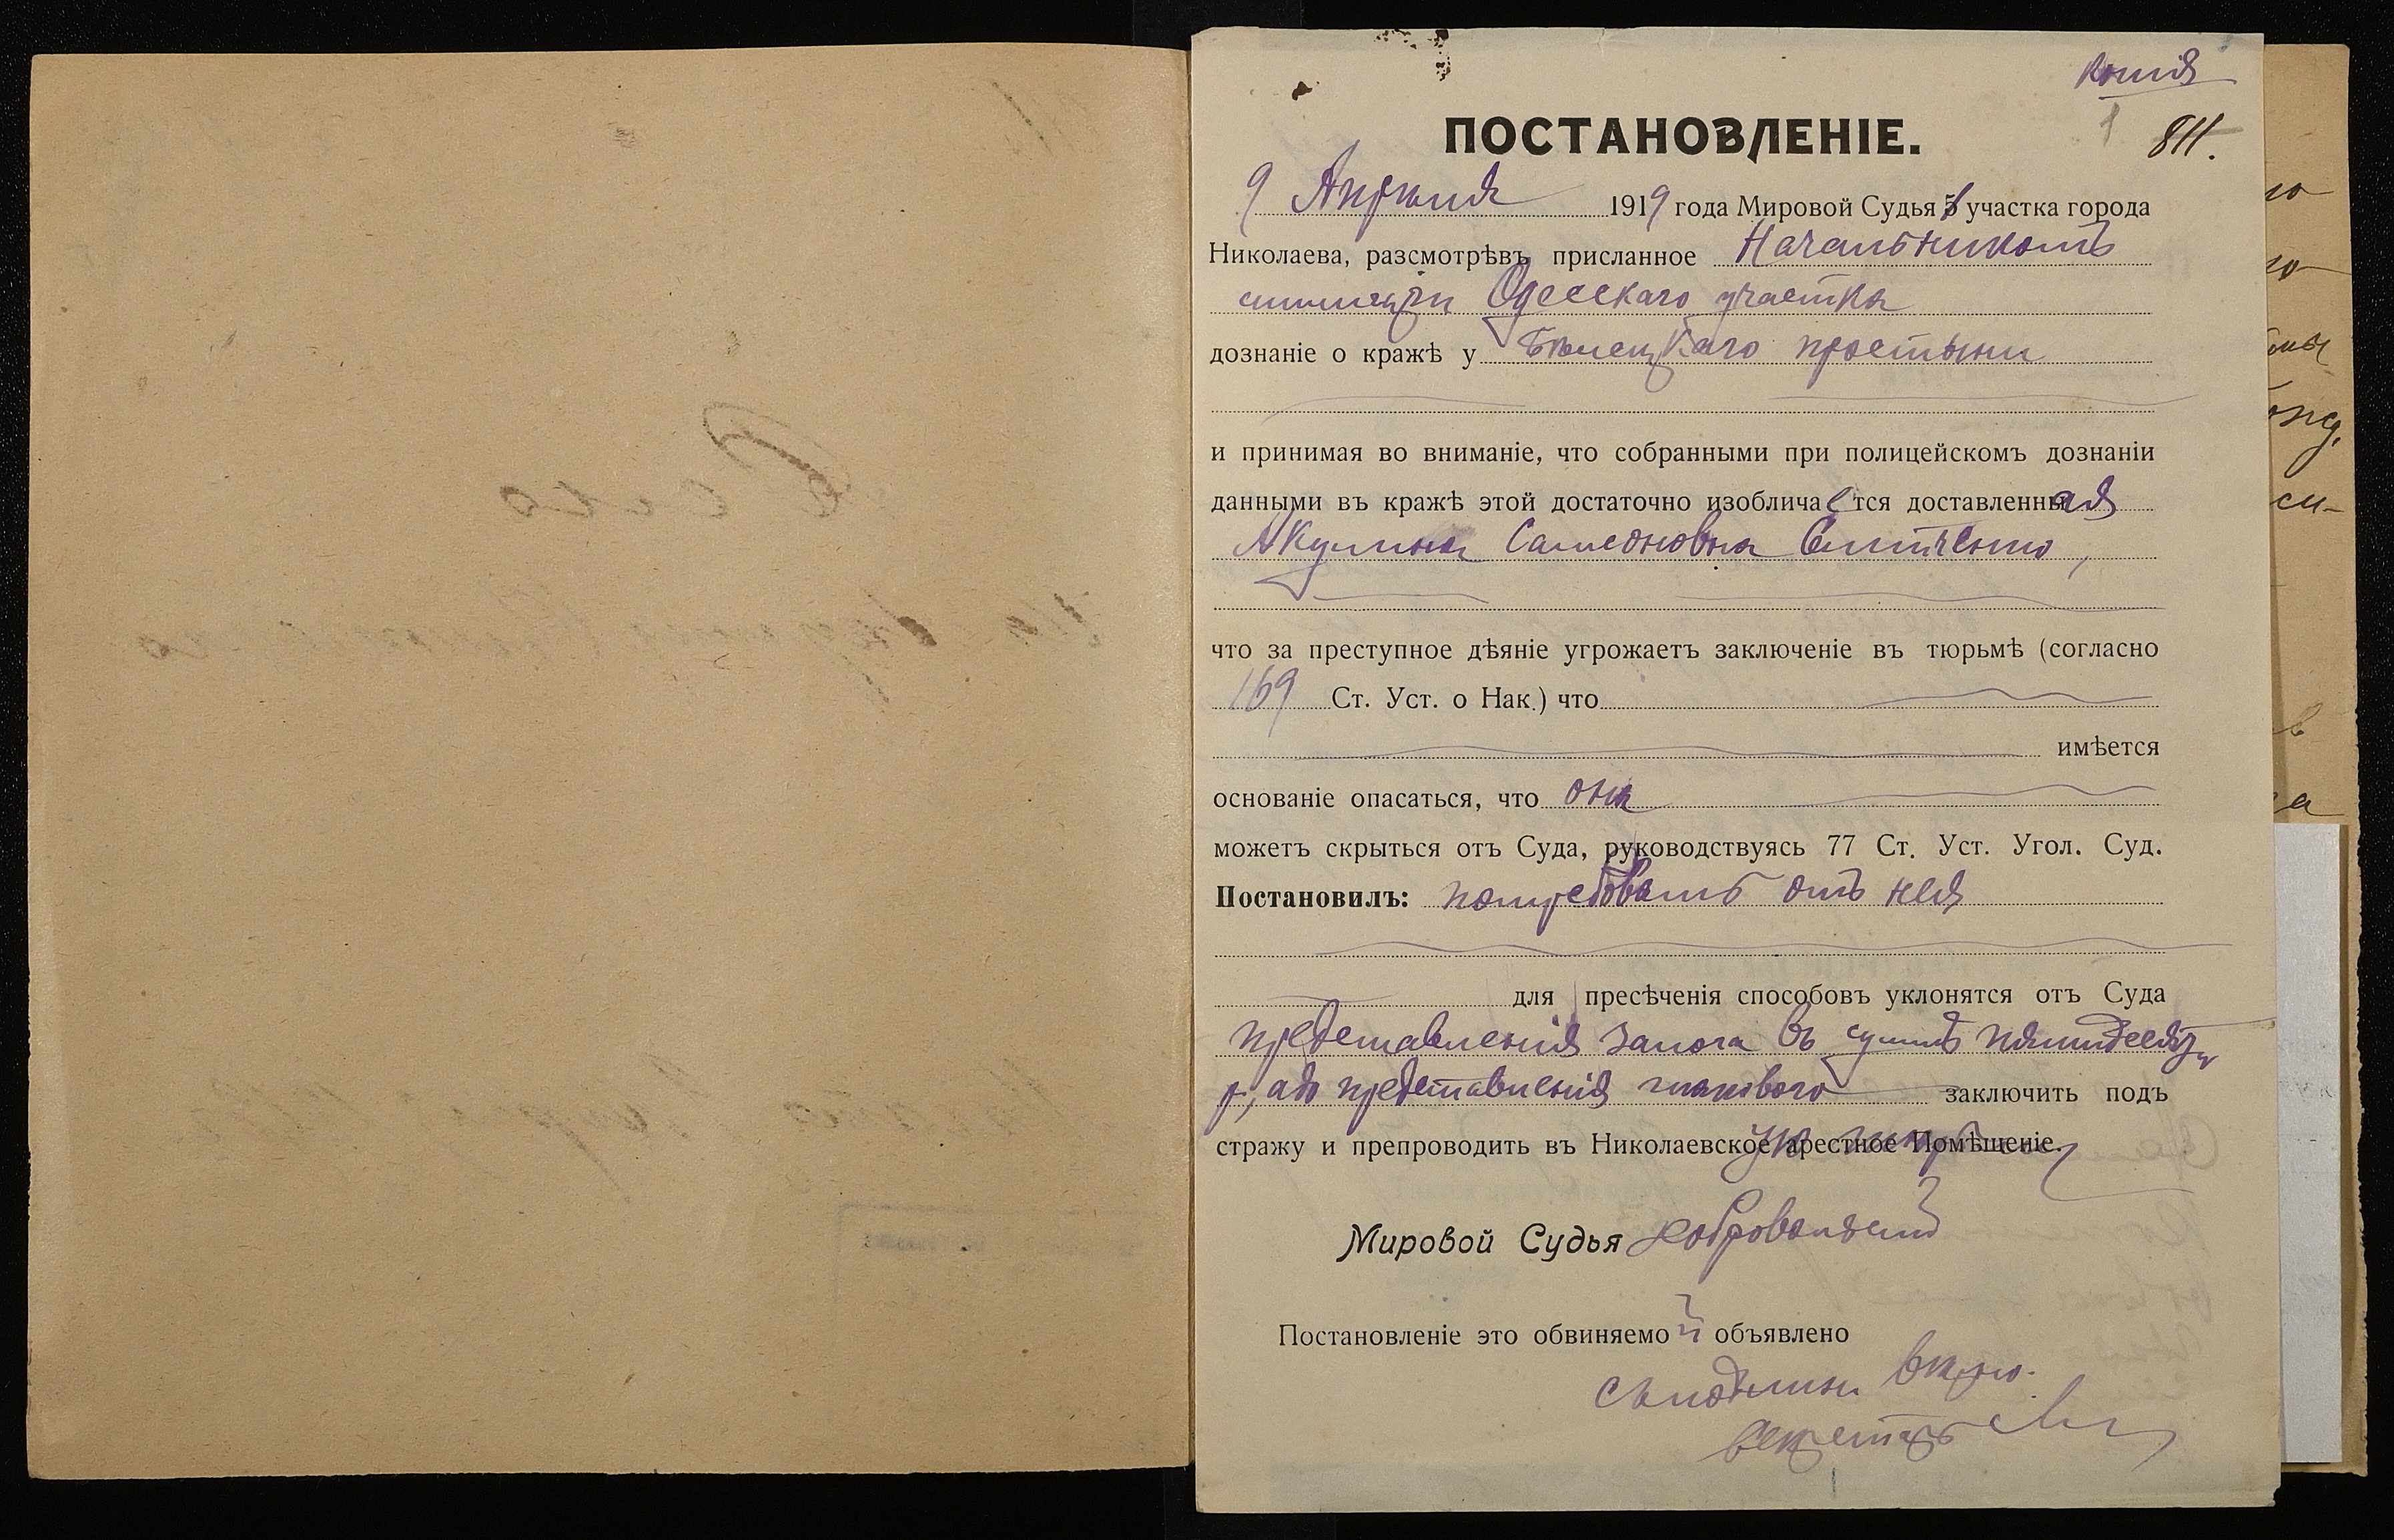 копія
811.
ПОСТАНОВЛЕНІЕ.
9 Апрѣля 1919 года Мировой Судья участка города
Николаева, разсмотрѣвъ присланное Начальникомъ
милиціи Одесскаго участка
дознаніе о кражѣ у Бѣлецкаго простыни
и принимая во вниманіе, что собранными при полицейскомъ дознаніи
данными въ кражѣ этой достаточно изобличается доставленная
Акулина Самсоновна
что за преступное дѣяніе угрожаетъ заключеніе въ тюрьмѣ (согласно
169 Ст. Уст. о Нак.) что
имѣется
основаніе опасаться, что она
можетъ скрыться отъ Суда, руководствуясь 77 Ст. Уст. Угол. Суд.
Постановилъ: потребовать отъ нея
для пресѣченія способовъ уклонятся отъ Суда
представленія залога въ суммѣ пятидесяти
р, а до представленія таковаго заключить подъ
стражу и препроводить въ Николаевское арестное Помѣщеніе.
Мировой Судья
Постановленіе это обвиняемой объявлено
Съ подлин. вѣрно.
Секретарь